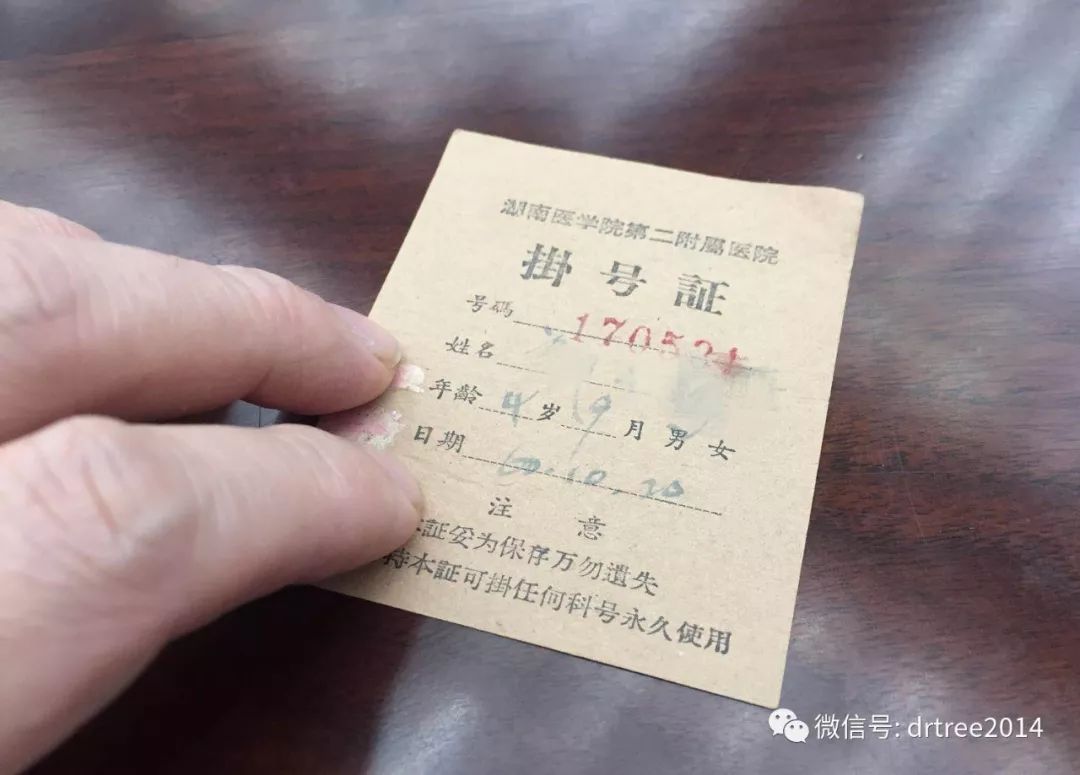 湖南医学院第二附屬医院
掛号証
号碼 170521
姓名
年齡 4 岁 9 月 男 女
日期 60.10.20
注意
本証妥为保存万勿遺失
持本証可掛任何科号永久使用
微信号: drtree2014